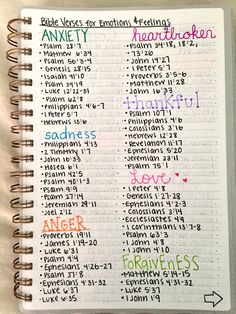 Bible Verses for Emotions & Feelings
ANXIETY
• Psalm 23:7
• Matthew 6:34
• Psalm 56:3-4
• Genesis 28:15
• Isaiah 41:10
• Psalm 34:19
• Luke 12:22-31
• Psalm 62:8
• Philippians 4:6-7
• 1 Peter 5:7
• Hebrews 13:6
sadness
• Philippians 4:13
• 2 Timothy 1:7
• John 16:33
• Hosea 6:1
• Psalm 42:5
• Psalm 40:1-3
• Psalm 4:9
• Psalm 27:14
• Jeremiah 29:11
• Joel 2:12
ANGER
• Proverbs 19:11
• James 1:19-20
• Luke 6:31
• Ephesians 4:26-27
• Psalm 37:8
• Ephesians 4:32
• Luke 6:37
• Luke 6:35
heartbroken
• Psalm 34:18, 18:2,
73:26
• John 14:27
• 1 Peter 5:7
• Proverbs 3:5-6
• Matthew 11:28
• John 16:33
thankful
• Psalm 107:1
• Philippians 4:6
• Colossians 3:16
• Hebrews 12:28
• Revelation 11:17
• Ephesians 5:20
• Jeremiah 33:11
• Psalm 75:1
Love
• 1 Peter 4:8
• Genesis 1:27-28
• Ephesians 4:2-3
• Colossians 3:14
• Ecclesiastes 4:9
• 1 Corinthians 13:7-8
• Psalm 63:3
• 1 John 4:8
• 1 John 4:10
FORGIVENESS
• Matthew 5:14-15
• Ephesians 4:31-32
• Luke 6:37
• 1 John 1:9